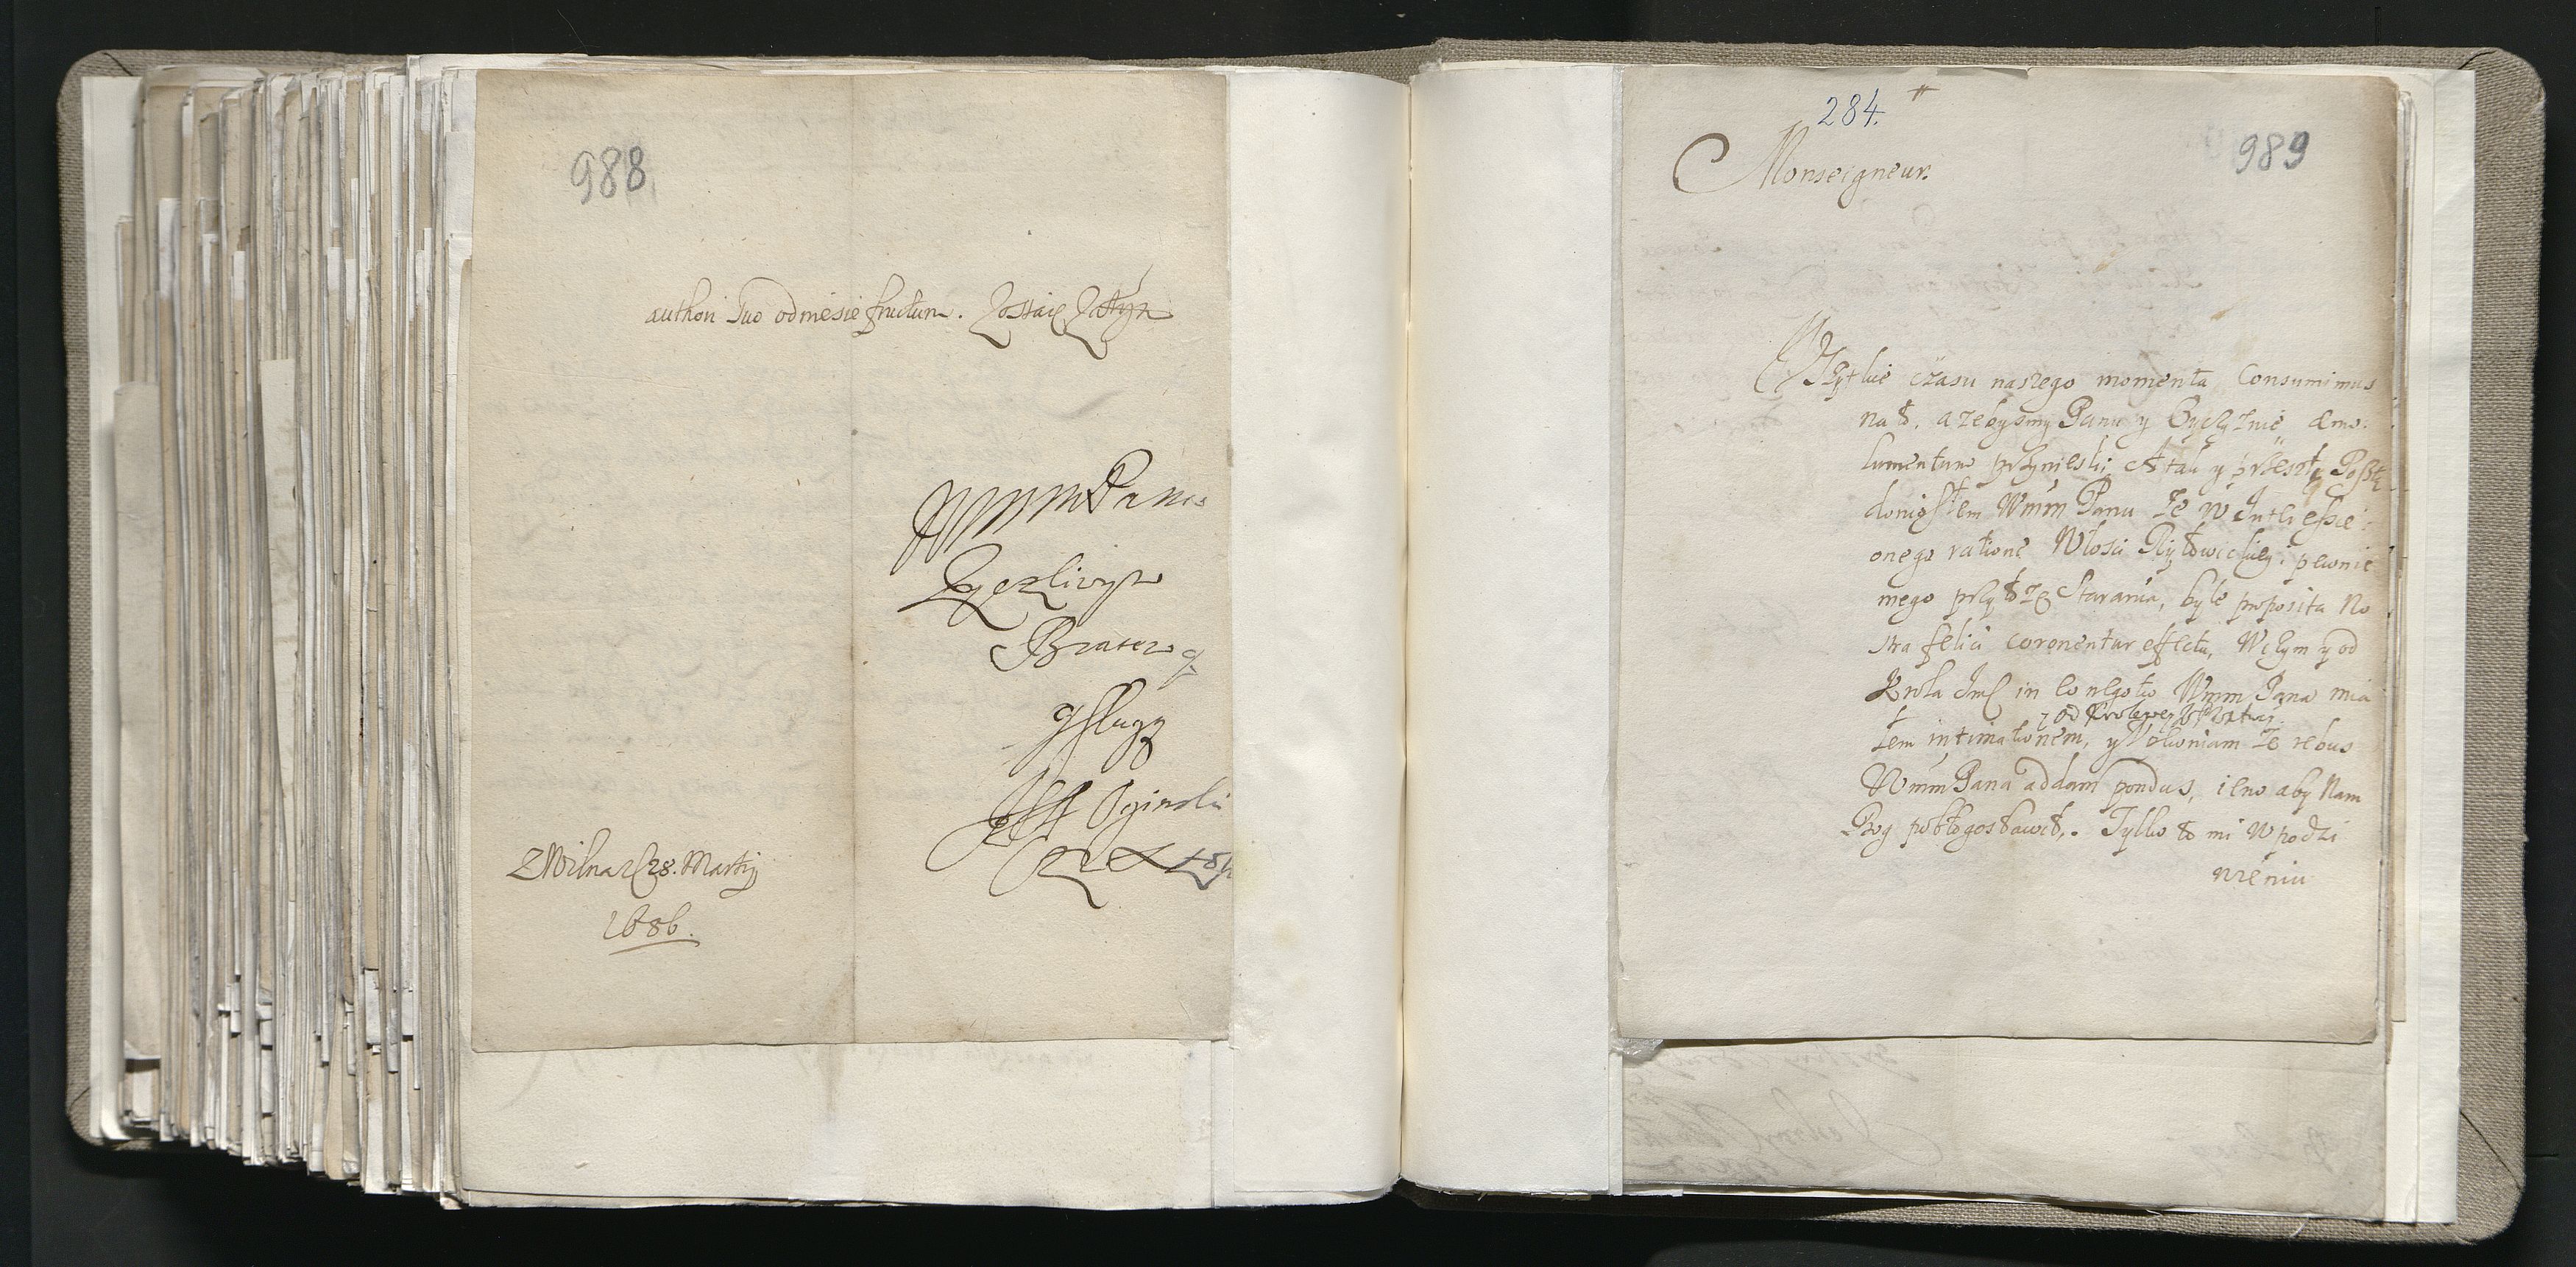 988
authori suo odniesie fructum. Zostaię Zatym
WMMPana
Zyczliwym
Bratem y
y sługą
Oginski
ZWilna 28. Martij
1686.
284.
989
Monseigneur.
czasu naszego momenta Consumimus
na to, azebysmy Panu y Oyczyznie emo
lumentum przyniesli; A tak y przeszłą Posztą
doniosłem Wmm Panu ze w Interessie
onego ratione Włosci pewnie
mego przyłozę Starania, byle proposita No
stra felici coronentur effectu, Wczym y od
Krola Jmsci in Wmm Pana mia
y od Krolewey
łem intimationem, y ze rebus
Wmm Pana addam pondus, ieno aby Nam
Bog pobłogosławił. Tylko to mi w podzi
wieniu